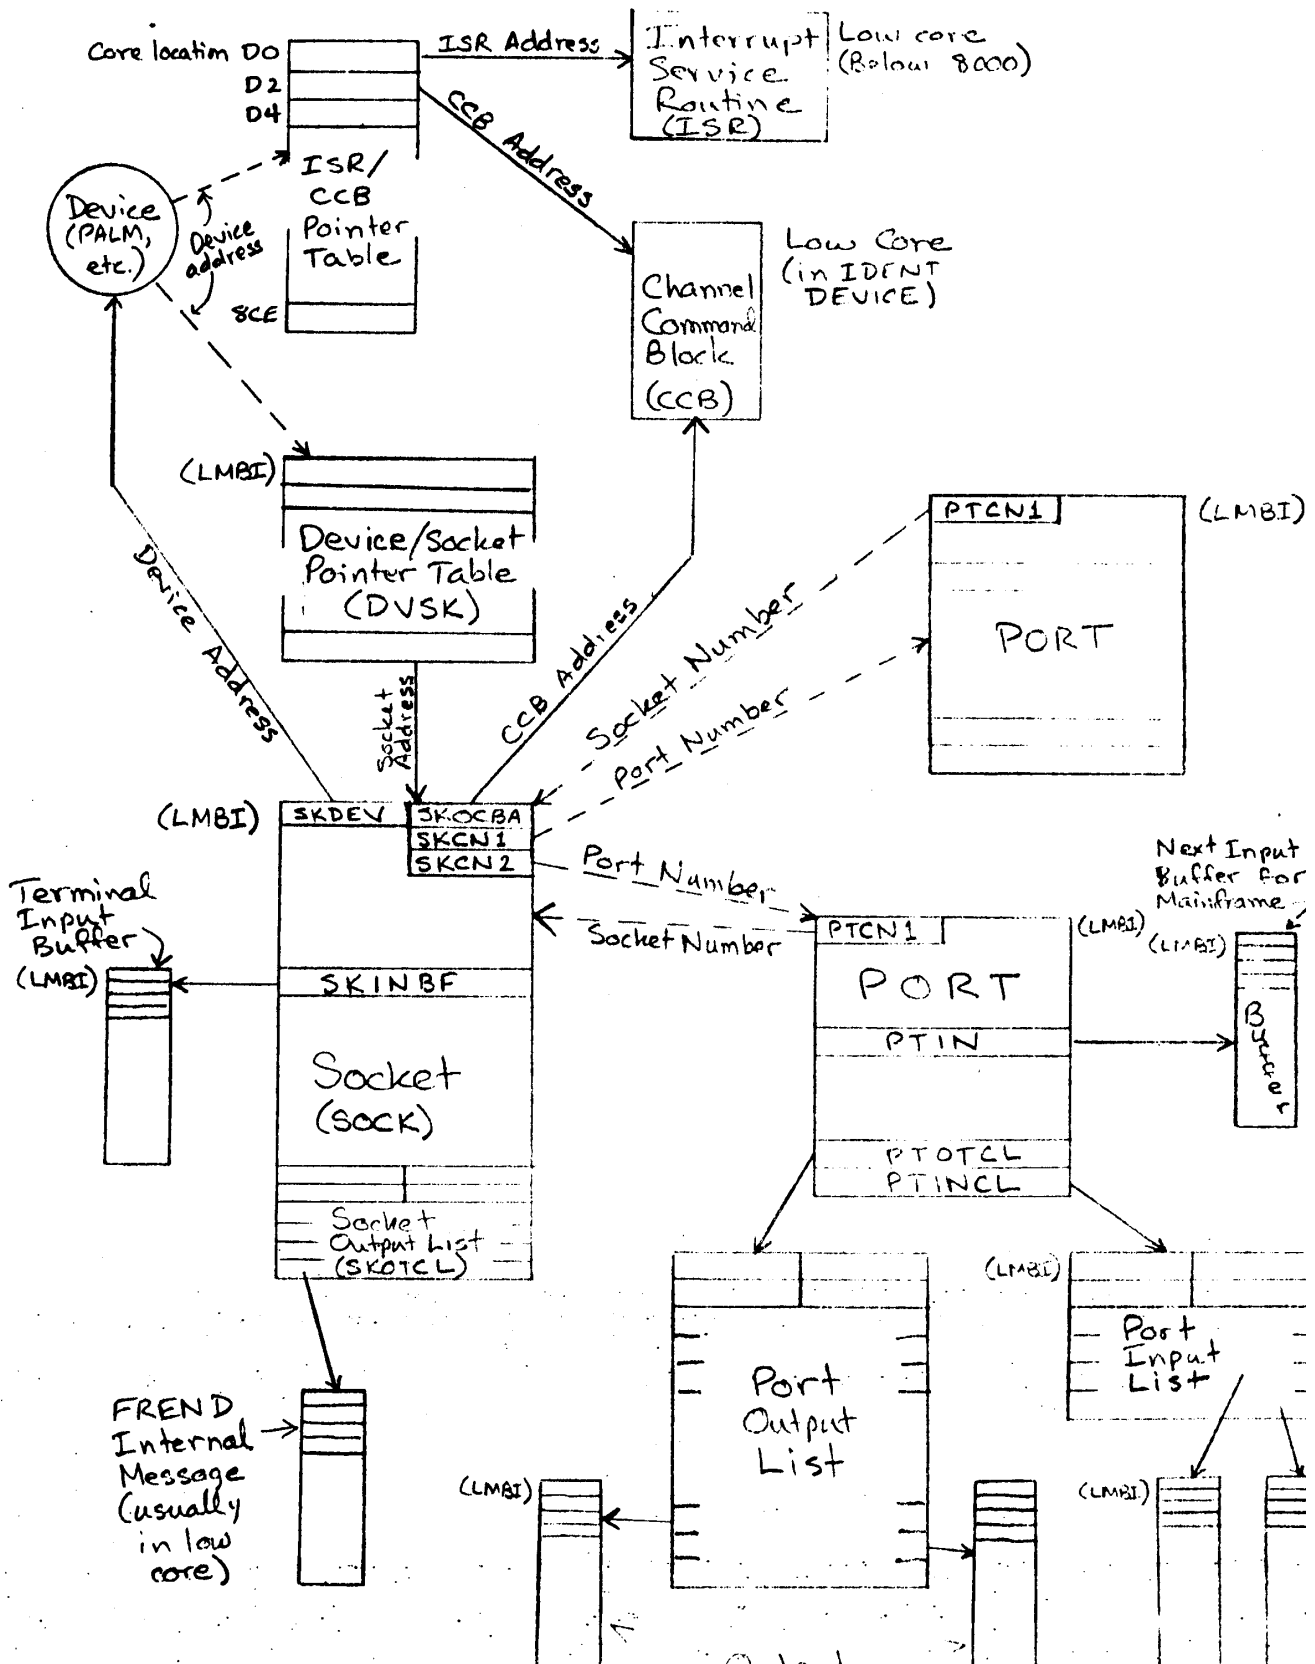 Core location D0
D2
D4
ISR Address
Interrupt
Service
Routine
(ISR)
Low core
(Below 8000)
CCB Address
ISR/
CCB
Pointer
Table
8CE
Device
(PALM,
etc.)
Device
address
Channel
Command
Block
(CCB)
Low Core
(in IDENT
DEVICE)
(LMBI)
Device/Socket
Pointer Table
(DVSK)
PTCN1
(LMBI)
PORT
Device Address
Socket
Address
CCB Address
Socket Number
Port Number
(LMBI)
SKDEV
SKOCBA
SKCN1
SKCN2
Port Number
Socket Number
Terminal
Input
Buffer
(LMBI)
SKINBF
Socket
(SOCK)
Socket
Output List
(SKOTCL)
PTCN1
(LMBI)
PORT
PTIN
PTOTCL
PTINCL
Next Input
Buffer for
Mainframe
(LMBI)
Buffer
FREND
Internal
Message
(usually
in low
core)
Port
Output
List
(LMBI)
(LMBI)
Port
Input
List
(LMBI)